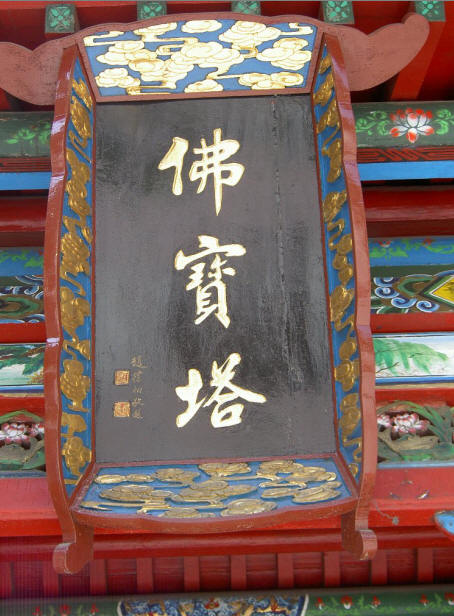 佛寶塔